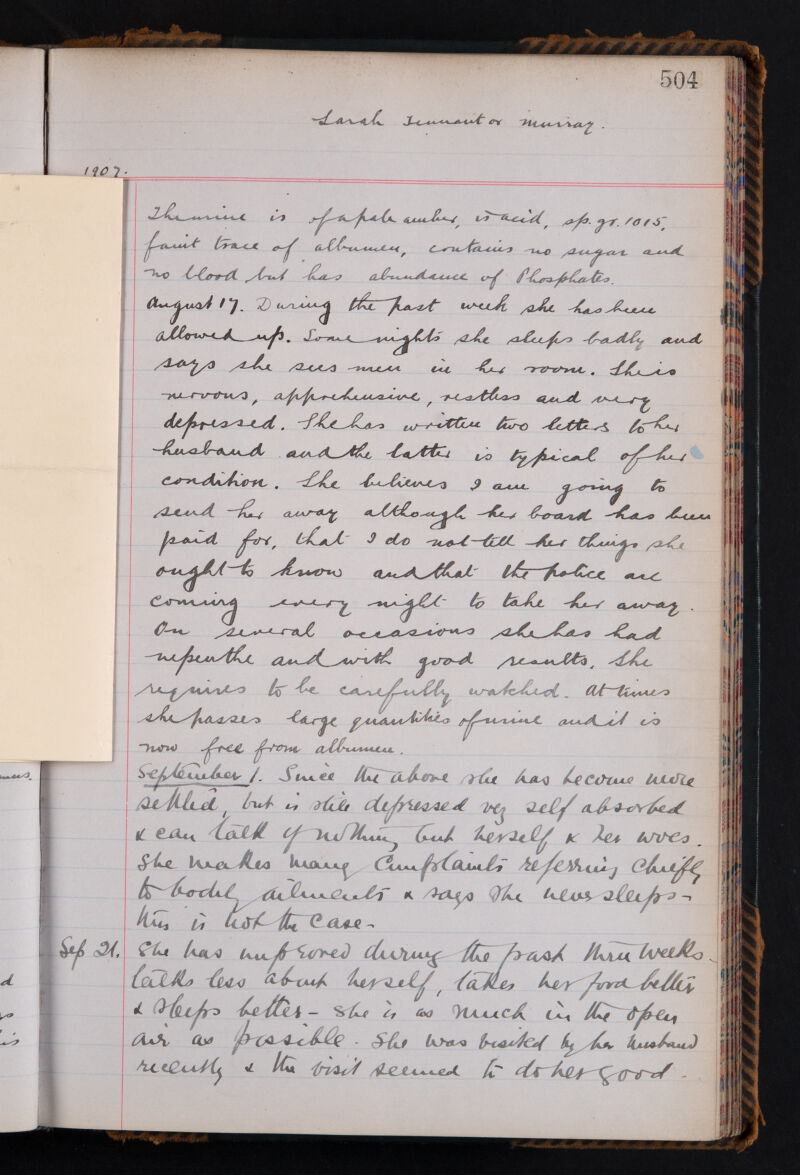 504
Sarah Tennant or Murray.
1907.
The urine is of a pale amber, is acid, sp. gr. 1015,
faint trace of albumen, contains no sugar and
no blood but has abundance of Phosphates.
August 17. During the past week she has been
allowed up. Some nights she sleeps badly and
says she sees men in her room. She is
nervous, apprehensive, restless and very
depressed. She has written two letters to her
husband and the latter is typical of her
condition. She believes I am going to
send her away although her board has been
paid for, that I do not tell her things she
ought to know and that the police are
coming every night to take her away.
On several occasions she has had
nepenthe and with good results. She
requires to be carefully watched. At times
she passes large quantities of urine and it is
now free from albumen.
September 1. Since the above she has become more
settled, but is still depressed very self absorbed
& can talk of nothing but herself & her woes.
She makes many Complaints referring chiefly
to bodily ailments & says she never sleeps -
this is not the case -
Sep 21. She has improved during the past three weeks -
talks less about herself, takes her food better
& sleeps better - she is as much in the open
air as possible. She was visited by her husband
recently & the visit seemed to do her good -